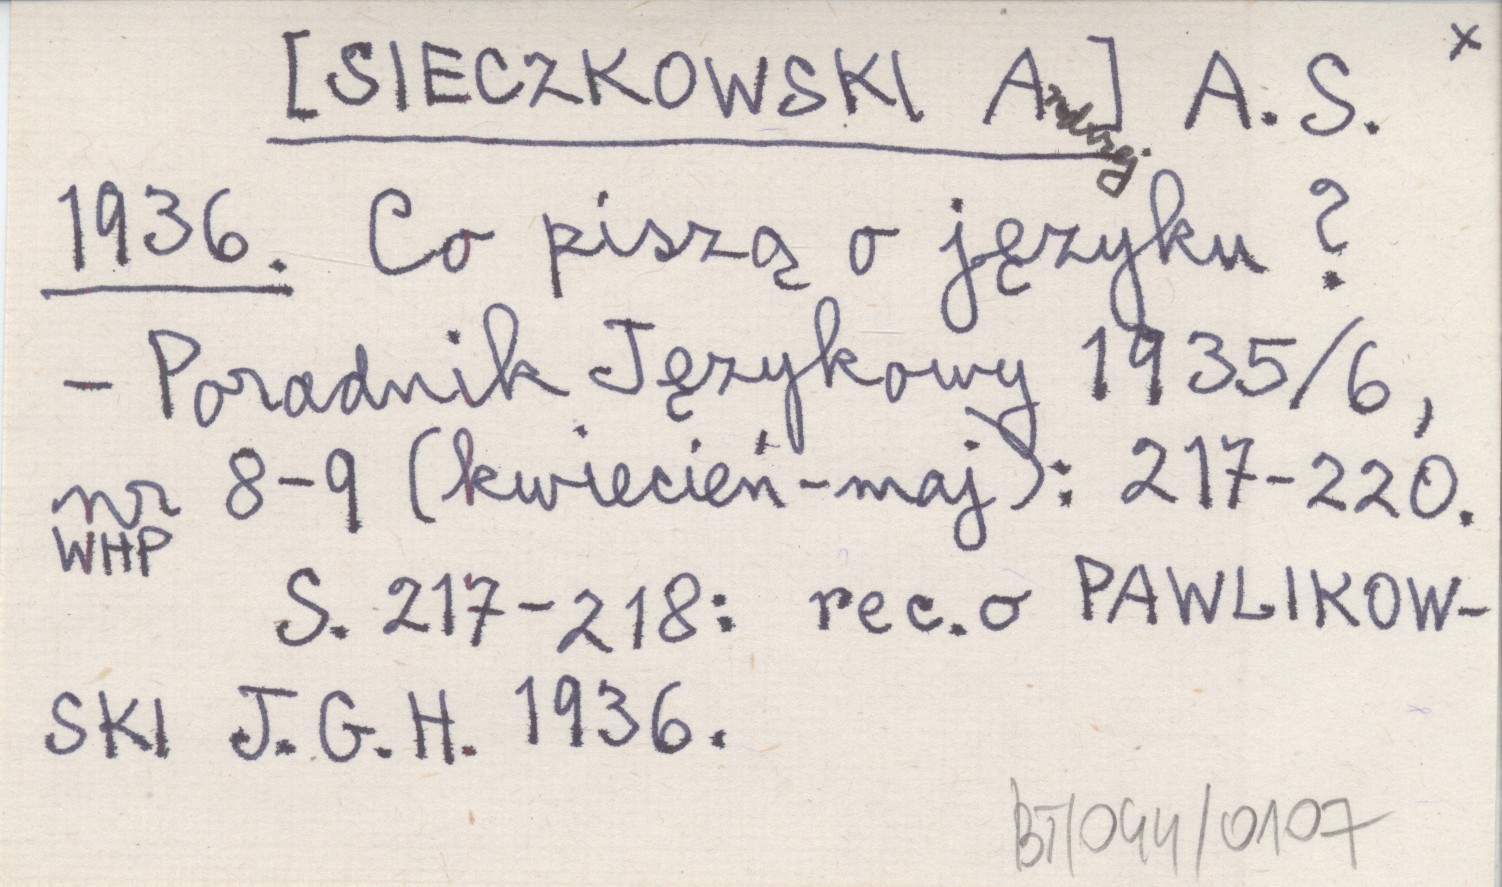 [SIECZKOWSKI Andrzej.] A. S. x
1936. Co piszą o języku ?
- Poradnik Językowy 1935/6,
nr 8-9 (kwiecień-maj): 217-220.
WHP
S. 217-218: rec. o PAWLIKOW-
SKI J.G.H. 1936.
BT/044/0107